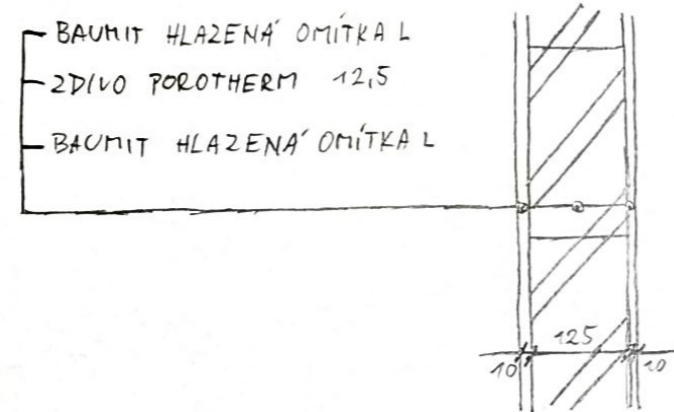 BAUMIT HLAZENÁ OMÍTKA L
ZDIVO POROTHERM 12,5
BAUMIT HLAZENÁ OMÍTKA L
10 125 10